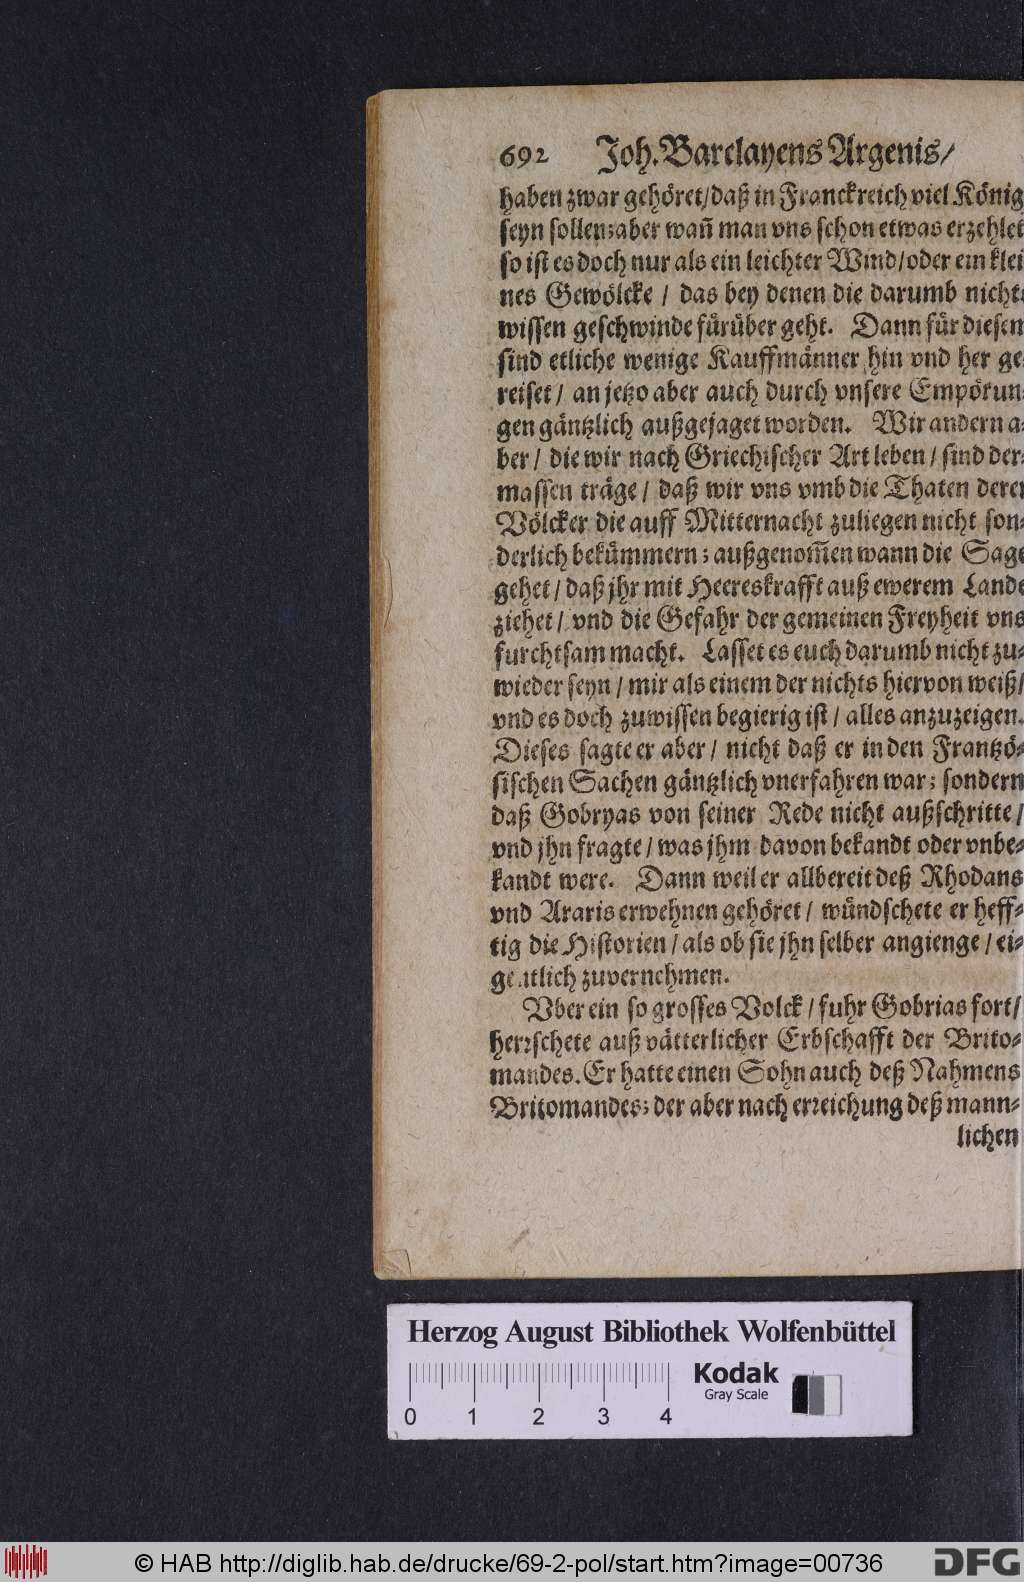 692 Joh. Barclayens Argenis/
haben zwar gehöret/daß in Franckreich viel König
seyn sollen;aber wañ man vns schon etwas erzehlet
so ist es doch nur als ein leichter Wind/oder ein klei
nes Gewölcke / das bey denen die darumb nicht
wissen geschwinde fürüber geht. Dann für diesen
sind etliche wenige Kauffmänner hin vnd her ge
reiset/ an jetzo aber auch durch vnsere Empörun
gen gäntzlich außgejaget worden. Wir andern a-
ber / die wir nach Griechischer Art leben / sind der-
massen träge / daß wir vns vmb die Thaten derer
Völcker die auff Mitternacht zuliegen nicht son-
derlich bekümmern; außgenom̃en wann die Sage
gehet / daß jhr mit Heereskrafft auß ewerem Lande
ziehet / vnd die Gefahr der gemeinen Freyheit vns
furchtsam macht. Lasset es euch darumb nicht zu-
wieder seyn / mir als einem der nichts hiervon weiß/
vnd es doch zuwissen begierig ist / alles anzuzeigen.
Dieses sagte er aber / nicht daß er in den Frantzö-
sischen Sachen gäntzlich vnerfahren war; sondern
daß Gobryas von seiner Rede nicht außschritte /
vnd jhn fragte / was jhm davon bekandt oder vnbe-
kandt were. Dann weil er allbereit deß Rhodans
vnd Araris erwehnen gehöret / wündschete er heff-
tig die Historien / als ob sie jhn selber angienge / ei-
gentlich zuvernehmen.
Vber ein so grosses Volck / fuhr Gobrias fort/
herrschete auß vätterlicher Erbschafft der Brito-
mandes. Er hatte einen Sohn auch deß Nahmens
Britomandes; der aber nach erreichung deß mann-
lichen
Herzog August Bibliothek Wolfenbüttel
Kodak
Gray Scale
0 1 2 3 4
© HAB http://diglib.hab.de/drucke/69-2-pol/start.htm?image=00736
DFG